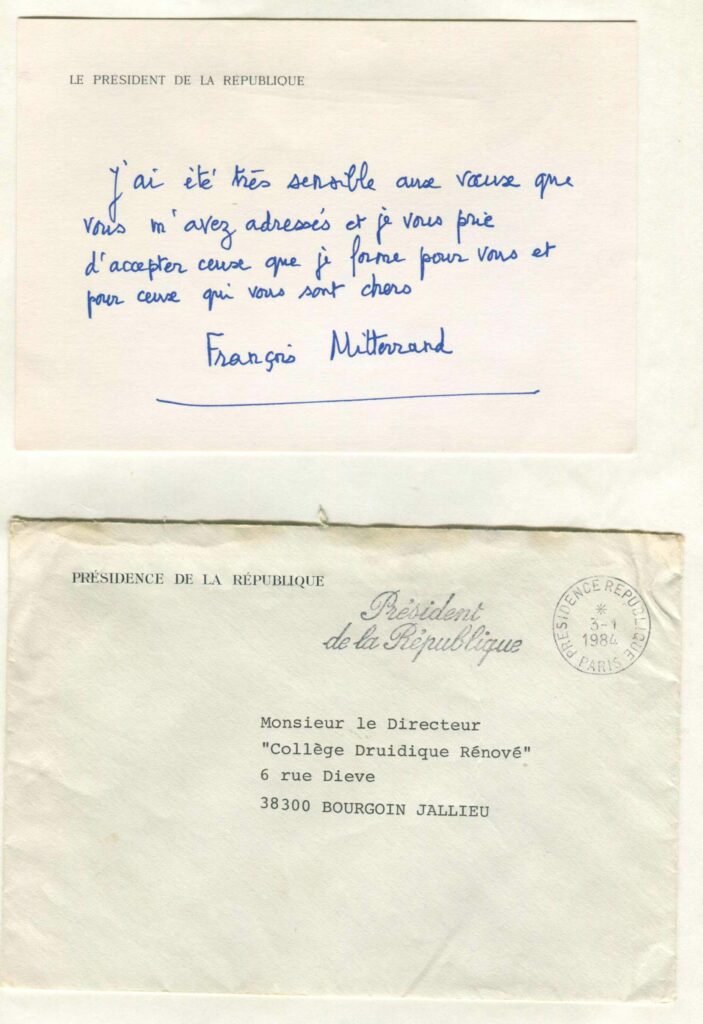 LE PRÉSIDENT DE LA RÉPUBLIQUE
J'ai été très sensible aux vœux que
vous m'avez adressés et je vous prie
d'accepter ceux que je forme pour vous et
pour ceux qui vous sont chers
François Mitterrand
PRÉSIDENCE DE LA RÉPUBLIQUE
Président
de la République
PRESIDENCE REPUBLIQUE
*
3-1
1984
PARIS
Monsieur le Directeur
"Collège Druidique Rénové"
6 rue Dieve
38300 BOURGOIN JALLIEU